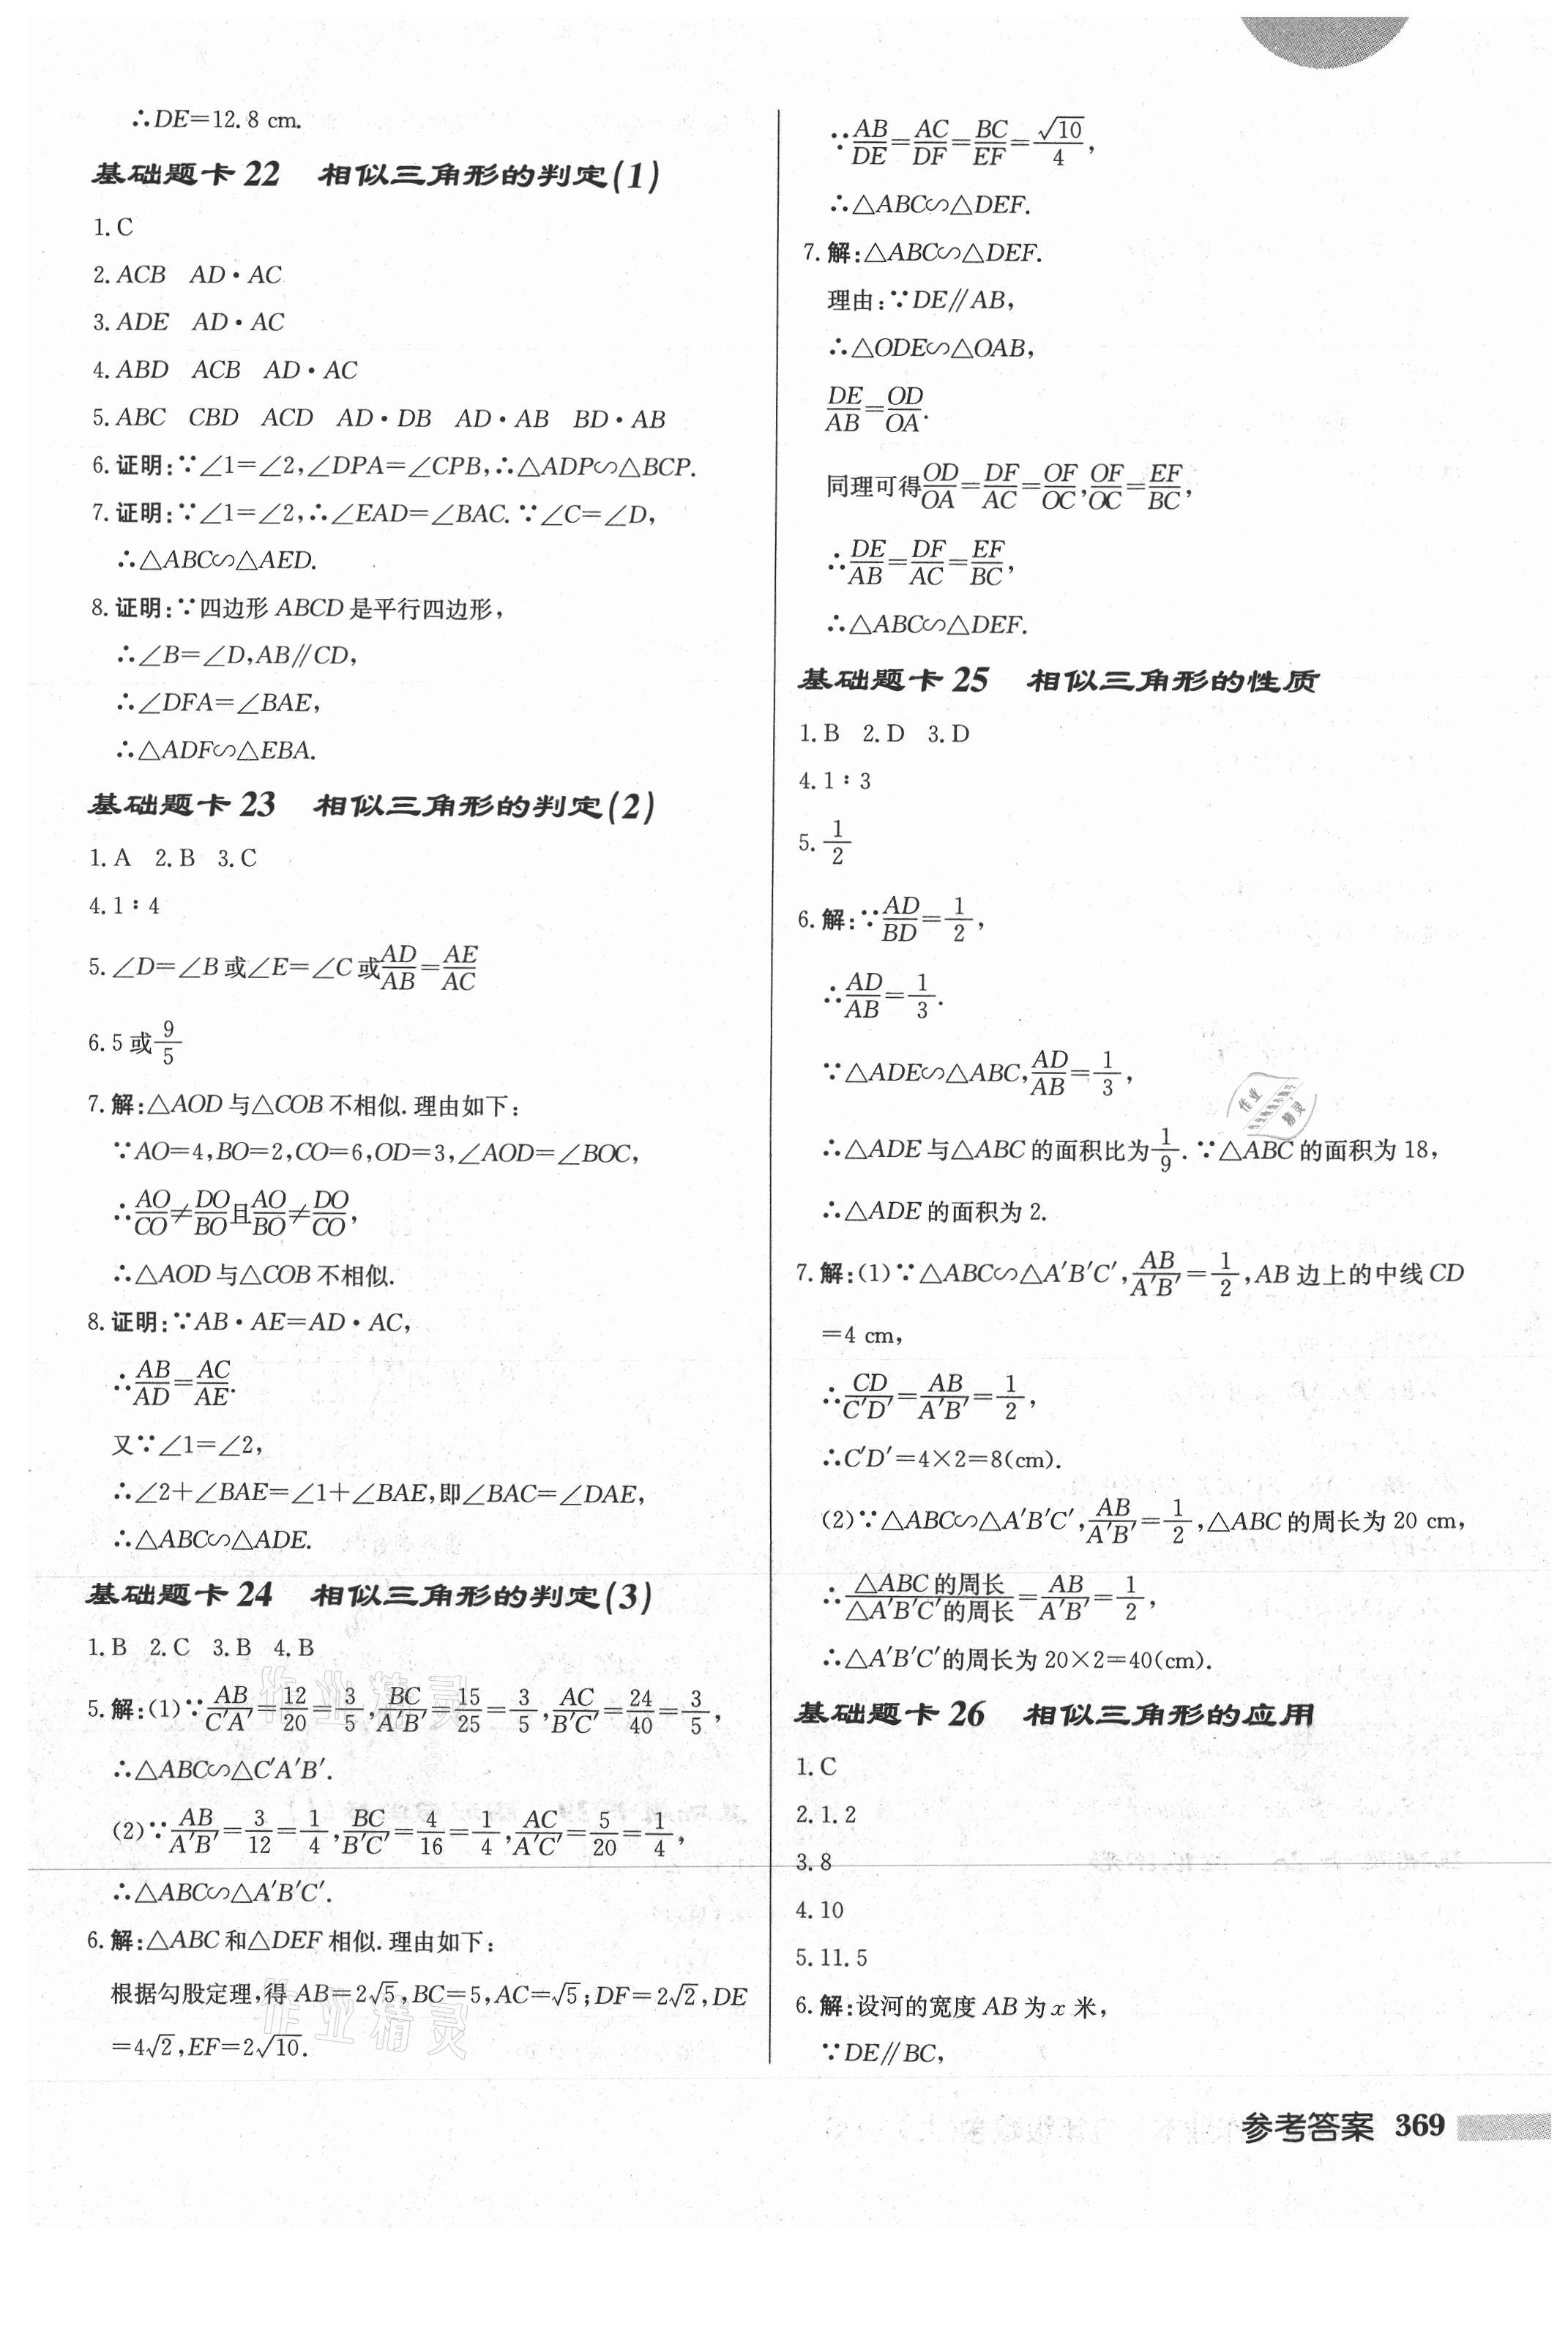 ∴DE=12.8 cm.
基础题卡 22 相似三角形的判定(1)
1.C
2.ACB AD·AC
3.ADE AD·AC
4.ABD ACB AD·AC
5.ABC CBD ACD AD·DB AD·AB BD·AB
6.证明:∵∠1=∠2,∠DPA=∠CPB,∴△ADP∽△BCP.
7.证明:∵∠1=∠2,∴∠EAD=∠BAC.∵∠C=∠D,
∴△ABC∽△AED.
8.证明:∵四边形 ABCD 是平行四边形,
∴∠B=∠D,AB∥CD,
∴∠DFA=∠BAE,
∴△ADF∽△EBA.
基础题卡 23 相似三角形的判定(2)
1.A 2.B 3.C
4.1∶4
5.∠D=∠B 或∠E=∠C 或AD/AB=AE/AC
6.5 或9/5
7.解:△AOD 与△COB 不相似.理由如下:
∵AO=4,BO=2,CO=6,OD=3,∠AOD=∠BOC,
∴AO/CO≠DO/BO且AO/BO≠DO/CO,
∴△AOD 与△COB 不相似.
8.证明:∵AB·AE=AD·AC,
∴AB/AD=AC/AE.
又∵∠1=∠2,
∴∠2+∠BAE=∠1+∠BAE,即∠BAC=∠DAE,
∴△ABC∽△ADE.
基础题卡 24 相似三角形的判定(3)
1.B 2.C 3.B 4.B
5.解:(1)∵AB/C′A′=12/20=3/5,BC/A′B′=15/25=3/5,AC/B′C′=24/40=3/5,
∴△ABC∽△C′A′B′.
(2)∵AB/A′B′=3/12=1/4,BC/B′C′=4/16=1/4,AC/A′C′=5/20=1/4,
∴△ABC∽△A′B′C′.
6.解:△ABC 和△DEF 相似.理由如下:
根据勾股定理,得 AB=2√5,BC=5,AC=√5;DF=2√2,DE
=4√2,EF=2√10.
∵AB/DE=AC/DF=BC/EF=√10/4,
∴△ABC∽△DEF.
7.解:△ABC∽△DEF.
理由:∵DE∥AB,
∴△ODE∽△OAB,
DE/AB=OD/OA.
同理可得OD/OA=DF/AC=OF/OC,OF/OC=EF/BC,
∴DE/AB=DF/AC=EF/BC,
∴△ABC∽△DEF.
基础题卡 25 相似三角形的性质
1.B 2.D 3.D
4.1∶3
5.1/2
6.解:∵AD/BD=1/2,
∴AD/AB=1/3.
∵△ADE∽△ABC,AD/AB=1/3,
∴△ADE 与△ABC 的面积比为1/9.∵△ABC 的面积为 18,
∴△ADE 的面积为 2.
7.解:(1)∵△ABC∽△A′B′C′,AB/A′B′=1/2,AB 边上的中线 CD
=4 cm,
∴CD/C′D′=AB/A′B′=1/2,
∴C′D′=4×2=8(cm).
(2)∵△ABC∽△A′B′C′,AB/A′B′=1/2,△ABC 的周长为 20 cm,
∴△ABC 的周长/△A′B′C′的周长=AB/A′B′=1/2,
∴△A′B′C′的周长为 20×2=40(cm).
基础题卡 26 相似三角形的应用
1.C
2.1.2
3.8
4.10
5.11.5
6.解:设河的宽度 AB 为 x 米,
∵DE∥BC,
参考答案 369
作业精灵
作业精灵
作业精灵